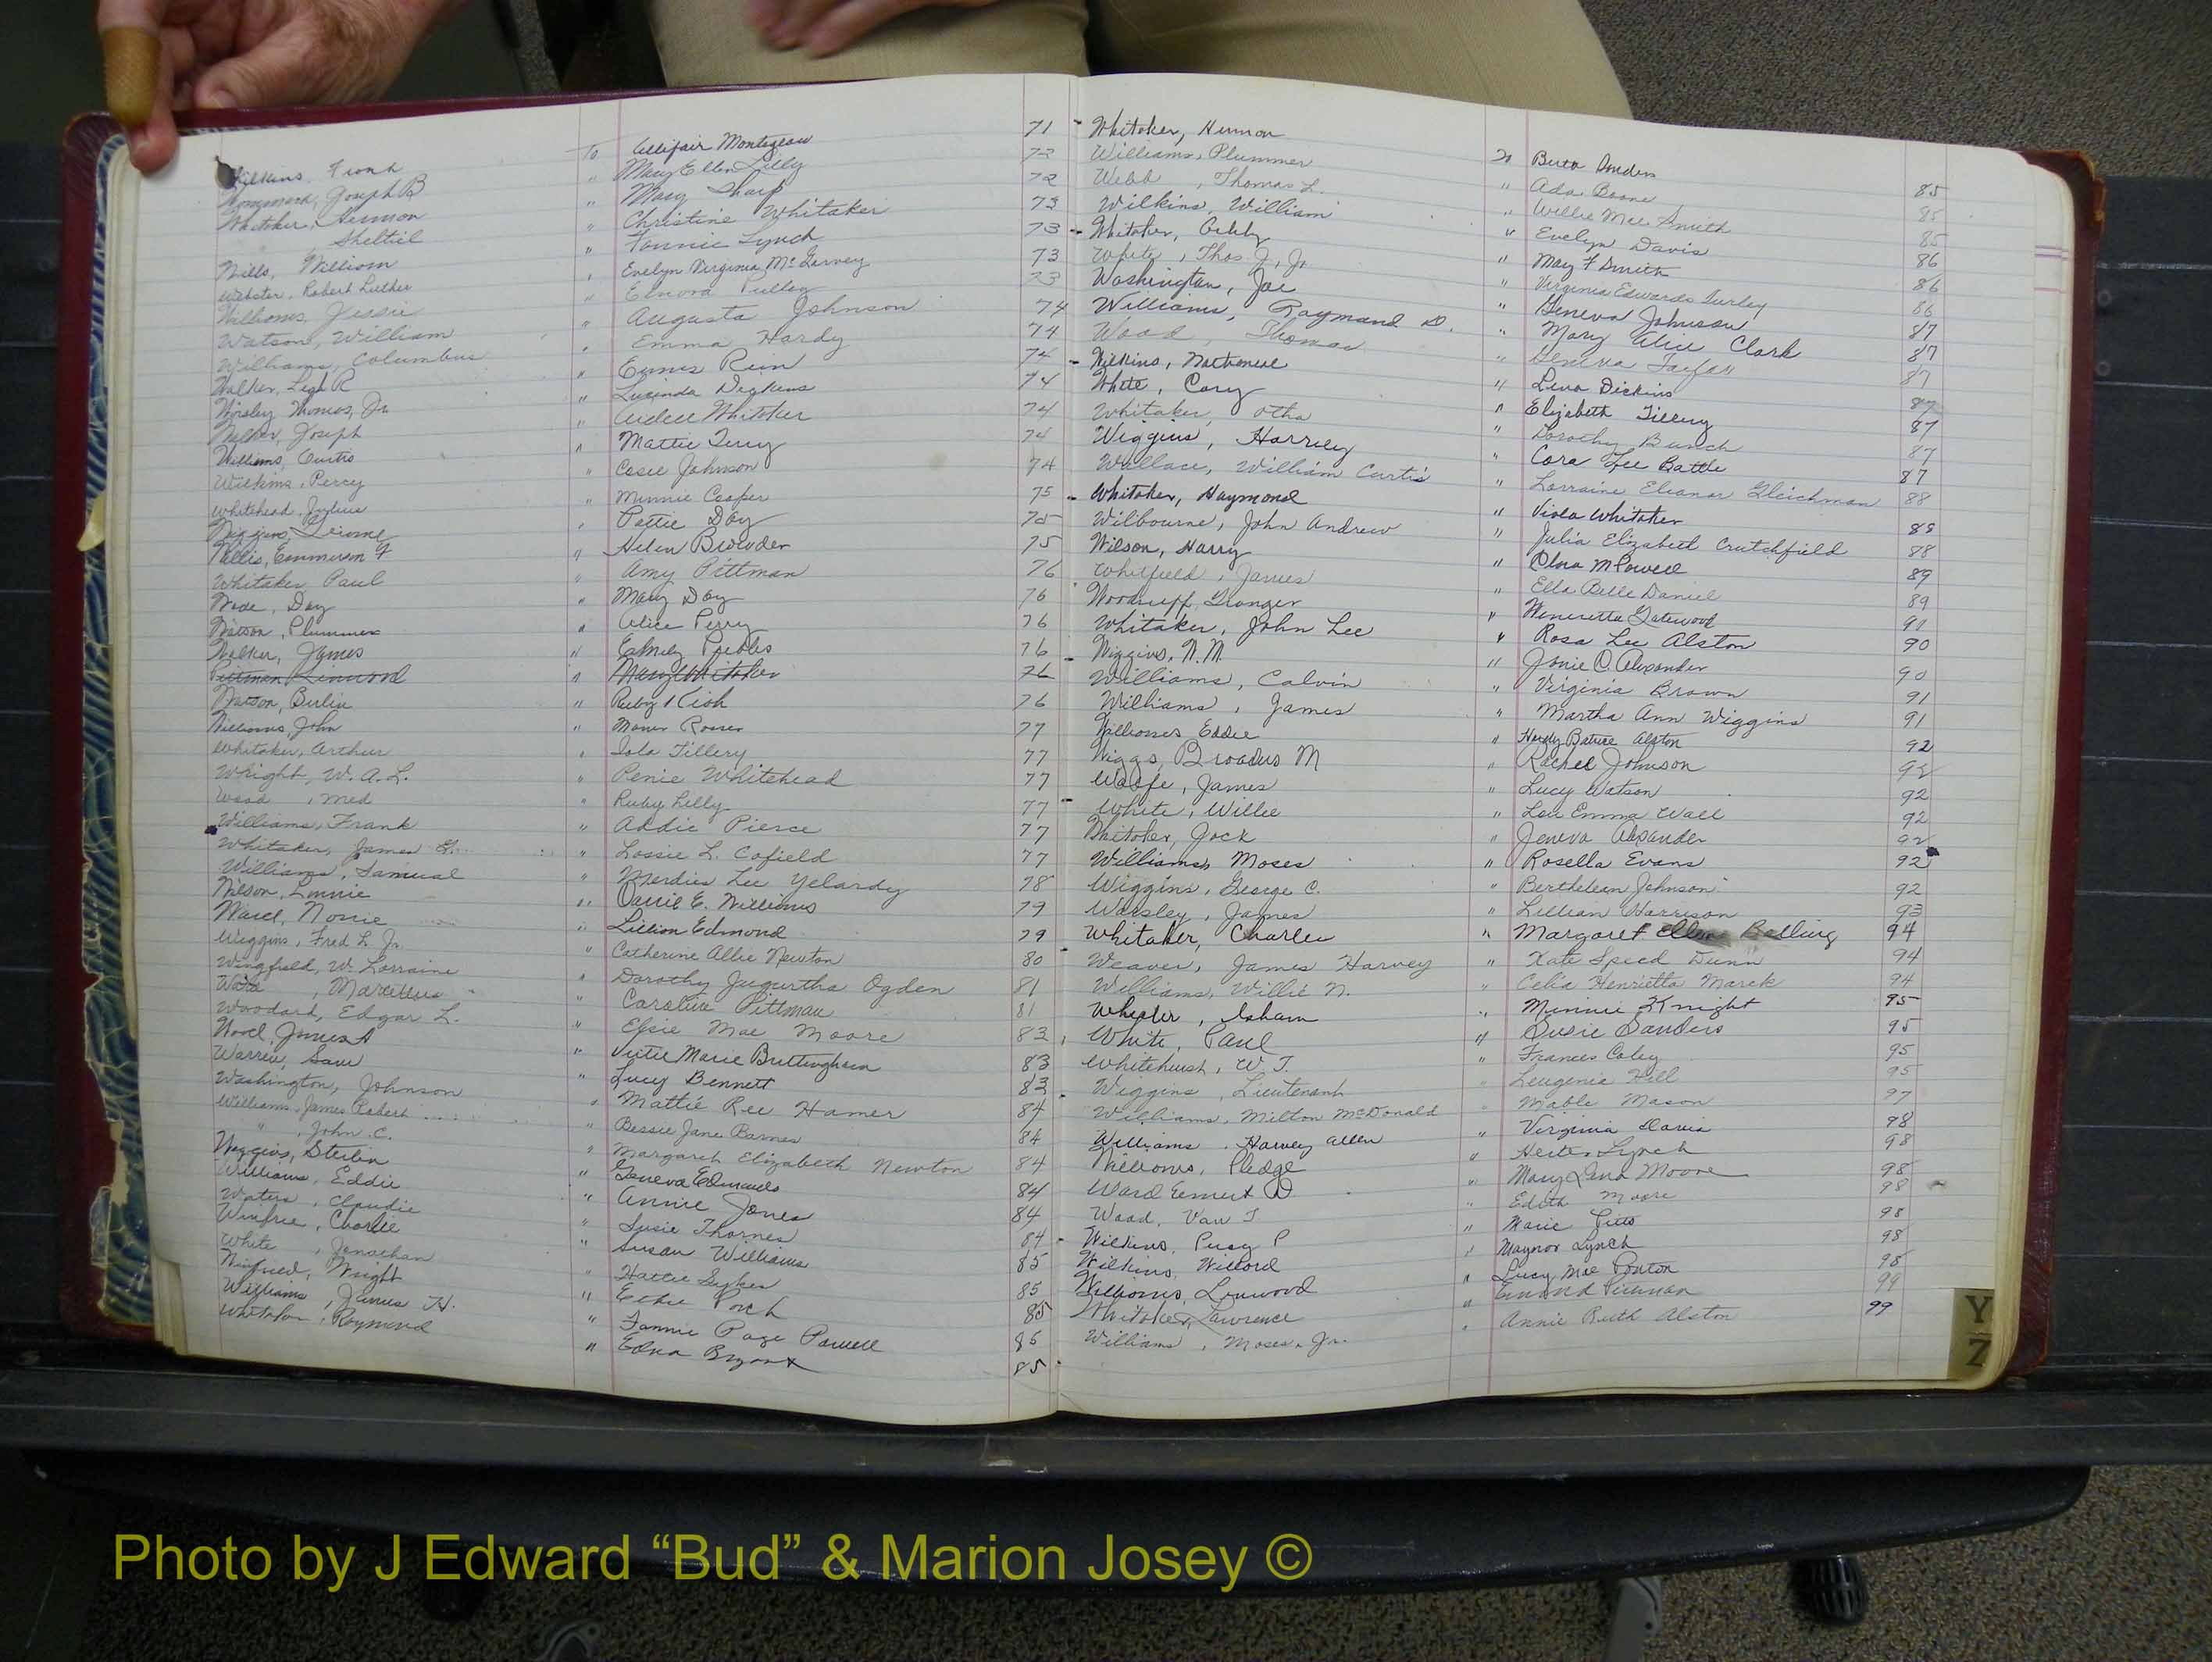 Wilkins, Frank To Allifair Montague 71
Joseph B " Mary Ellen Lilly 72
Whitaker, Hermon " Mary Sharp 72
", Sheltiel " Christine Whitaker 73
Mills, William " Fannie Lynch 73
Webster, Robert Luther " Evelyn Virginia McGarvey 73
Williams, Jessie " Elnora Pulley 73
Watson, William " Augusta Johnson 74
Williams, Columbus " Emma Hardy 74
Walker, Leigh R " Rim 74
Worsley Thomas, Jr. " Lucinda Digkens 74
Walker, Joseph " Whitaker 74
Williams, Curtis " Mattie Terry 74
Wilkins, Percy " Cosee Johnson 74
Whitehead, Julius " Minnie Cooper 75
Wiggins, " Pattie Day 75
Willis, Emmerson F " Helen Browder 75
Whitaker, Paul " Amy Pittman 76
Wade, Day " Mary Day 76
Watson, Plummer " Alice Perry 76
Walker, James " Emily Peebles 76
Pittman Linwood " Mary Whitaker 76
Watson, Burlin " Ruby Kish 76
Williams, John " Rosser 77
Whitaker, Arthur " Iola Tillery 77
Wright, W. A. L. " Penie Whitehead 77
Wood, Med " Ruby Lilly 77
Williams, Frank " Addie Pierce 77
Whitaker, James " Lossie L. Cofield 77
Williams, Samual " Merdies Lee Yelardy 78
Wilson, Linnie " Carrie E. Williams 79
Ward, Norrie " Lillian Edmond 79
Wiggins, Fred L. Jr. " Catherine Allie Newton 80
Wingfield, W. Lorraine " Dorothy Jugurtha Ogden 81
Ward, Marcellus " Caroline Pittman 81
Woodard, Edgar L. " Elsie Mae Moore 83
Wood, James A " Vertie Marie Brittingham 83
Warren, Sam " Lucy Bennett 83
Washington, Johnson " Mattie Ree Hamer 84
Williams, James Robert " Bessie Jane Barnes 84
", John C. " Margaret Elizabeth Newton 84
Wiggins, Sterlin " Geneva Edmonds 84
Williams, Eddie " Annie Jones 84
Waters, Claudie " Susie Thornes 84
Winfree, Charlie " Susan Williams 85
White, Jonathan " Hattie Sykes 85
Winfield, Wright " Porch 85
Williams, James H. " Fannie Page Powell 85
Whitaker, Raymond " Edna Bryant 85
Whitaker, Hermon To Berta Sanders 85
Williams, Plummer " Ada Boone 85
Webb, Thomas L. " Willie Mae Smith 85
Wilkins, William " Evelyn Davis 86
Whitaker, " May F Smith 86
White, Thos. J., Jr. " Virginia Edwards Turley 86
Washington, Joe " Geneva Johnson 87
Williams, Raymond D. " Mary Alice Clark 87
Wood, Thomas " Geneva Faifax 87
Wilkins, Nathaniel " Lena Dickins 87
White, Cary " Elizabeth Tillery 87
Whitaker, Otha " Dorothy Bunch 87
Wiggins, Harriey " Cora Lee Battle 87
Wallace, William Curtis " Lorraine Eleanor Gleichman 88
Whitaker, Haymond " Viola Whitaker 88
Wilbourne, John Andrew " Julia Elizabeth Crutchfield 88
Wilson, Harry " Powell 89
Whitfield, James " Ella Belle Daniel 89
Woodruff, Granger " Henrietta Gatewood 91
Whitaker, John Lee " Rosa Lee Alston 90
Wiggins, N. M. " Janie O. Alexander 90
Williams, Calvin " Virginia Brown 91
Williams, James " Martha Ann Wiggins 91
Williams Eddie " Alston 92
Wiggs, Broadus M " Rachel Johnson 92
Wolfe, James " Lucy Watson 92
White, Willie " Lou Emma Wall 92
Whitaker, Jack " Jeneva Alexander 92
Williams, Moses " Rosella Evans 92
Wiggins, George C. " Berthelean Johnson 92
Worsley, James " Lillian Harrison 93
Whitaker, Charlie " Margaret Ellen Bolling 94
Weaver, James Harvey " Kate Speed Dunn 94
Williams, Willie N. " Celia Henrietta Marek 94
Wheeler, Isham " Minnie Knight 95
White, Paul " Susie Sanders 95
Whitehurst, W. T. " Frances Coley 95
Wiggins, Lieutenant " Leugenie Hill 95
Williams, Milton McDonald " Mable Mason 97
Williams, Harvey Allen " Virginia Davis 98
Williams, Pledge " Hester Lynch 98
Ward Earnest D " Mary Lena Moore 98
Wood, Van T " Edith Moore 98
Wilkins, Percy P " Marie Pitts 98
Wilkins, Willard " Maynor Lynch 98
Williams, Linwood " Lucy Mae Ponton 98
Whitaker, Lawrence " Pittman 99
Williams, Moses, Jr. " Annie Ruth Alston 99
Y
Z
Photo by J Edward “Bud” & Marion Josey ©